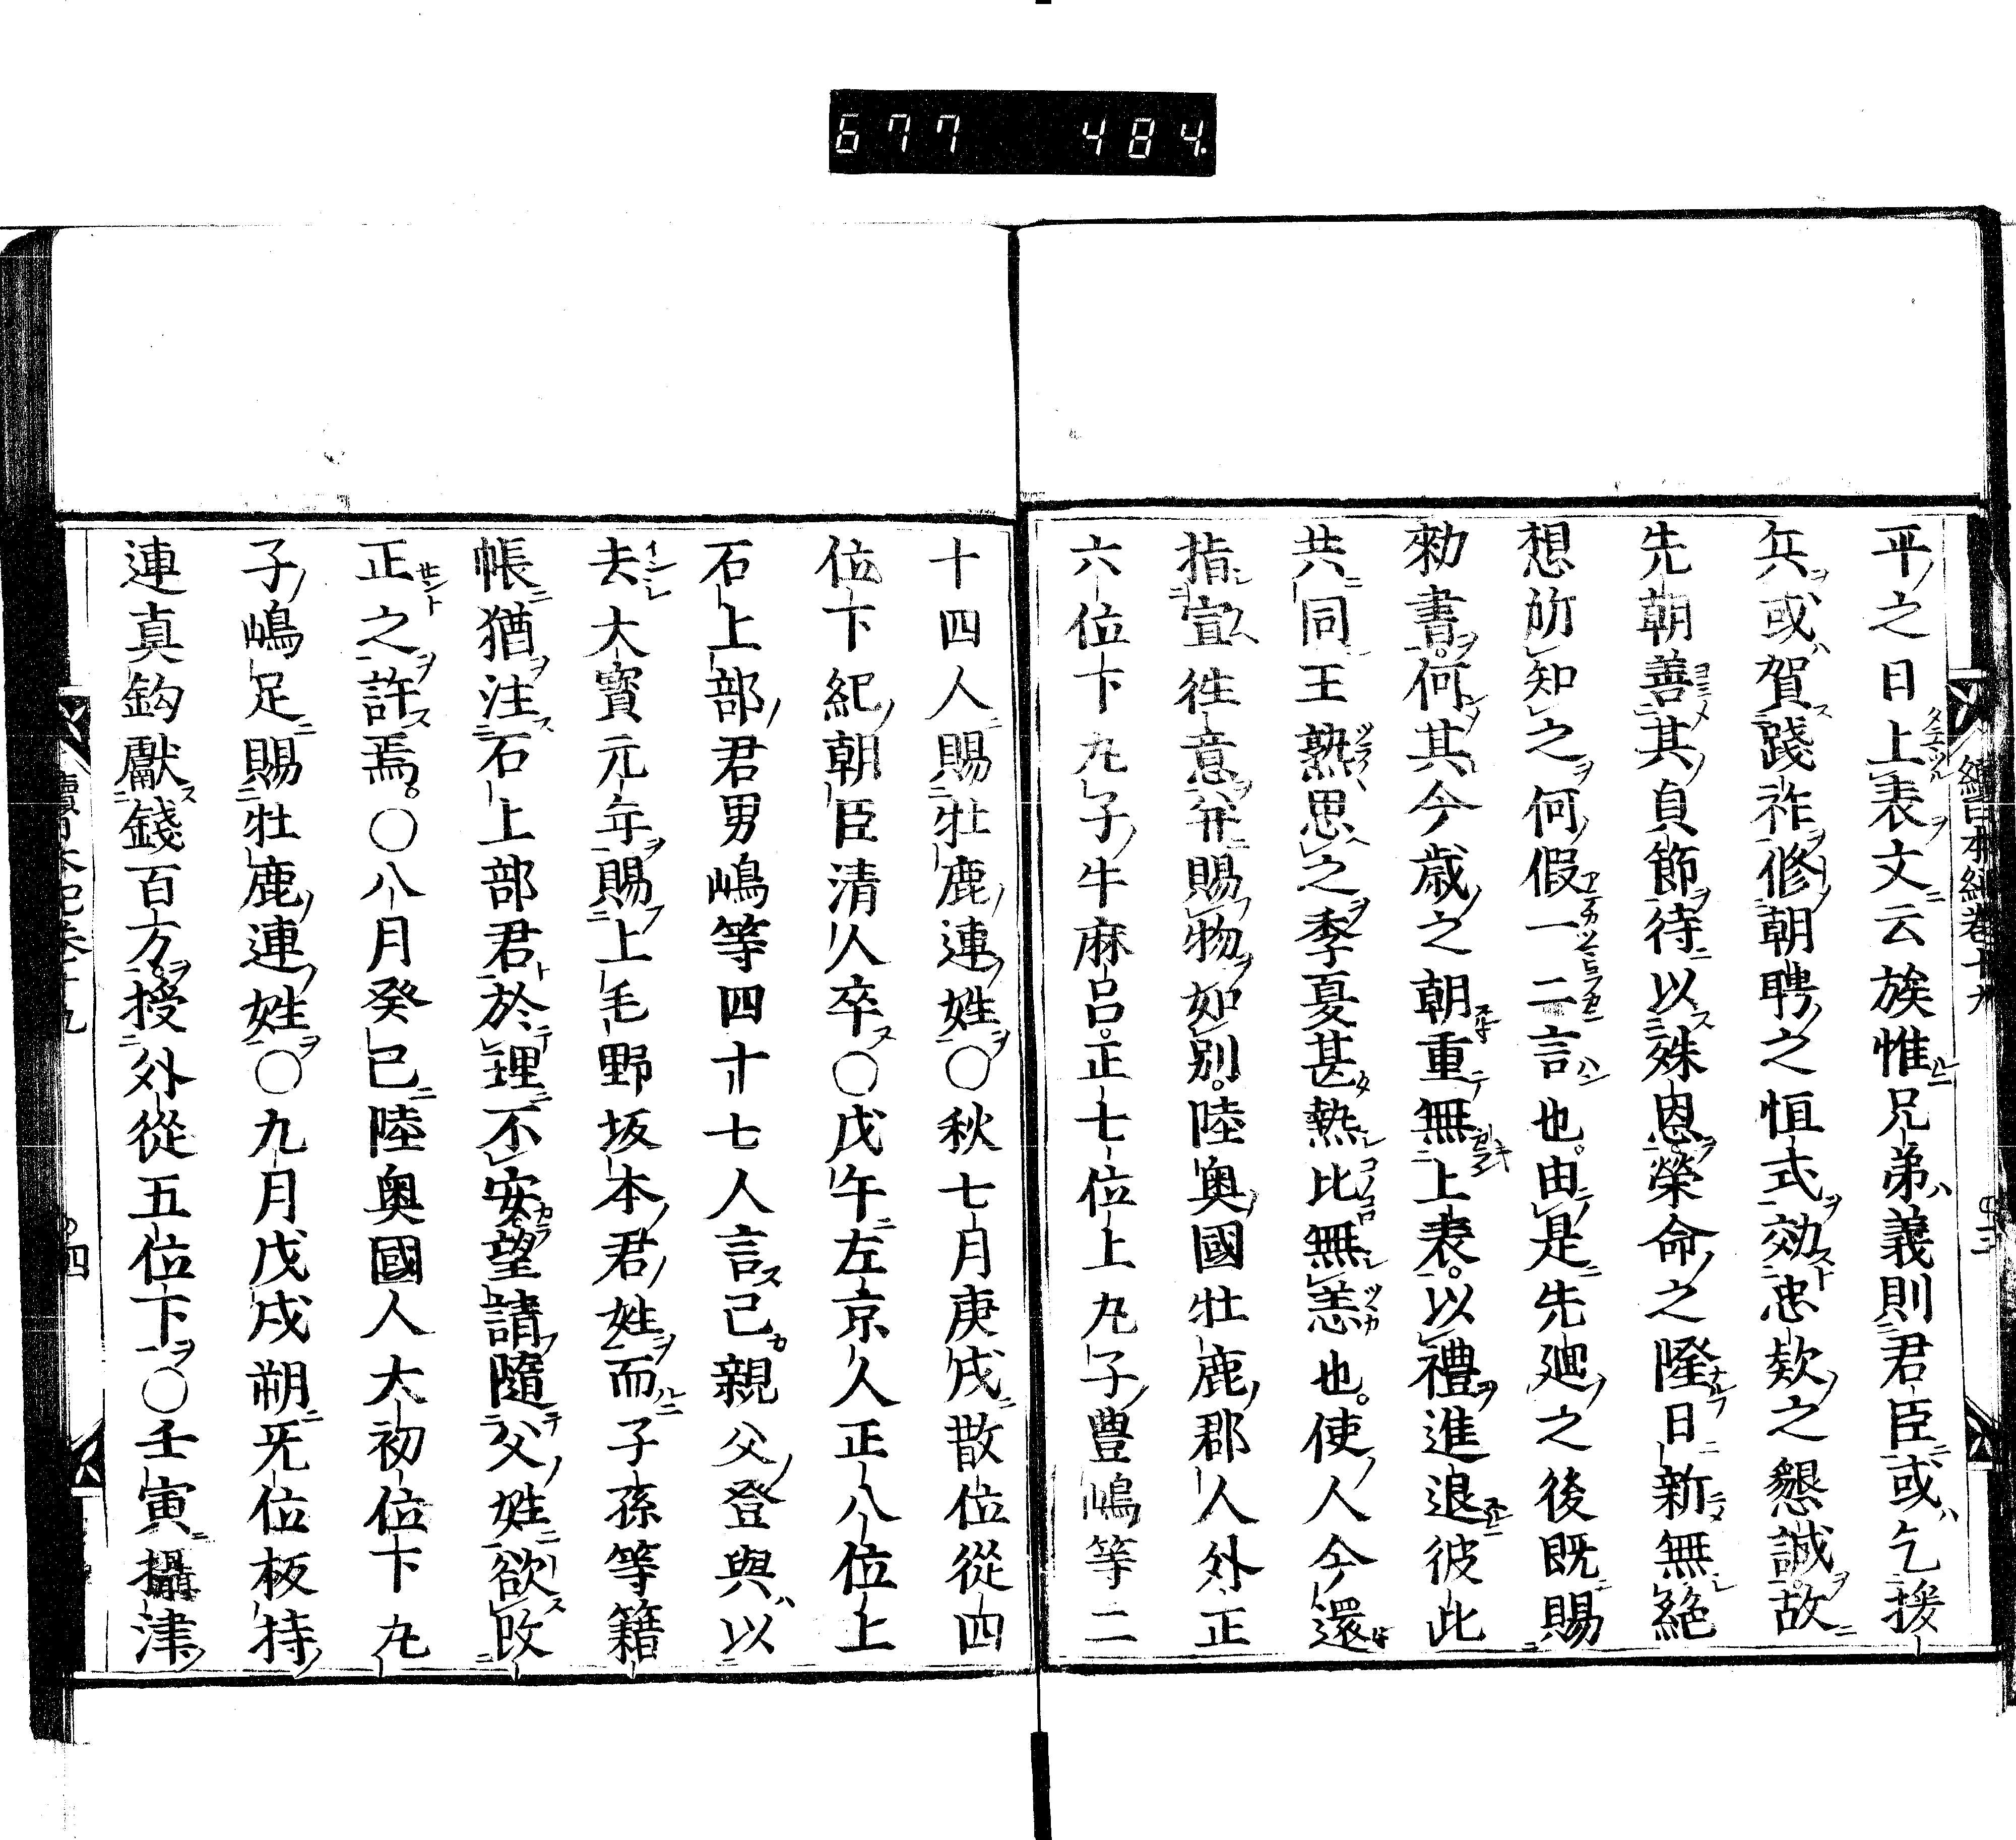 677 484
續日本紀卷十九
平之日上表文云族惟兄弟義則君臣或乞援
兵或賀踐祚修朝聘之恒式効忠欵之懇誠故
先朝善其貞節待以殊恩榮命之隆日新無絶
想所知之何假一二言也由是先廻之後既賜
勑書何其今歳之朝重無上表以禮進退彼此
共同王熟思之季夏甚熱比無恙也使人今還
指宣徃意并賜物如別陸奥國牡鹿郡人外正
六位下丸子牛麻呂正七位上丸子豊嶋等二
十四人賜牡鹿連姓○秋七月庚戌散位從四
位下紀朝臣清人卒○戊午左京人正八位上
石上部君男嶋等四十七人言己親父登與以
去大寳元年賜上毛野坂本君姓而子孫等籍
帳猶注石上部君於理不安望請隨父姓欲改
正之許焉○八月癸巳陸奥國人大初位下丸
子嶋足賜牡鹿連姓○九月戊戌朔旡位板持
連真鈎獻錢百万授外從五位下○壬寅攝津
續日本紀卷十九
四